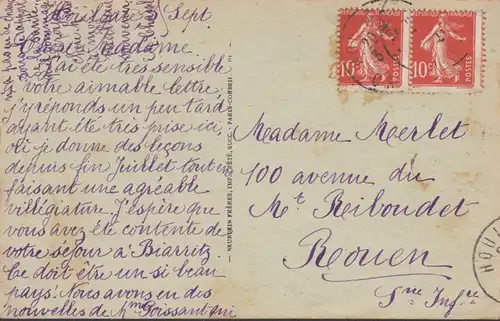 Houlgate Sept.
Chère Madame
J'ai été très sensible
votre aimable lettre,
j'y réponds un peu tard
ayant été très prise ici,
où je donne des leçons
depuis fin Juillet tout en
faisant une agréable
villégiature. J'espère que
vous avez été contente de
votre séjour à Biarritz
Ce doit être un si beau
pays! Nous avons eu des
nouvelles de Mme Poissant qui
NEURDEIN FRÈRES, IMP. CRÉTÉ, SUCC. - PARIS-CORBEIL
POSTES
10c
POSTES
10c
Madame Merlet
100 avenue du
Mt Riboudet
Rouen
Sne Infre
HOUL